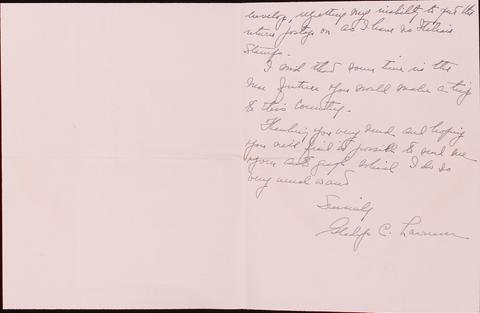 envelop, regretting my inability to put the
return postage on as I have no Italian
Stamps.
I wish that some time in the
near future you would make a trip
to this Country.
Thanking you very much and hoping
you will find it possible to send me
your autograph which I do so
very much want
Sincerely
Gladys C.